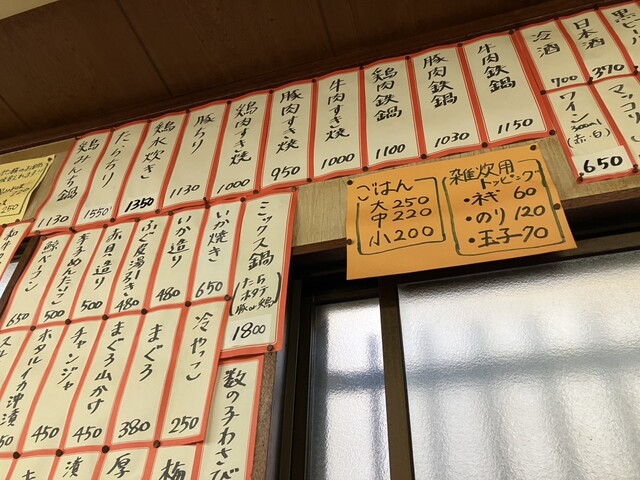 黒ビール
日本酒
370
冷酒
700
マッコリ
ワイン
300ml
(赤・白)
650
牛肉鉄鍋
1150
豚肉鉄鍋
1030
鶏肉鉄鍋
1100
牛肉すき焼
1000
豚肉すき焼
950
鶏肉すき焼
1000
豚ちり
1130
鶏水炊き
1350
たらちり
1550
鶏みんち鍋
1130
雑炊用
トッピング
・ネギ 60
・のり 120
・玉子 70
ごはん
大 250
中 220
小 200
ミックス鍋
(たら
ホタテ
豚or鶏)
1800
いか焼き
650
いか造り
480
ふぐ皮湯引き
480
赤貝造り
500
辛子めんたいこ
500
650
冷やっこ
250
まぐろ
380
まぐろ山かけ
450
チャンジャ
450
ホタルイカ沖漬
数の子わさび
梅
厚
漬
250